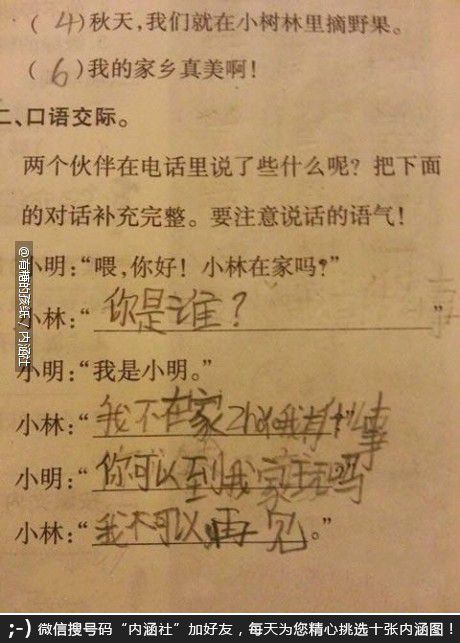 (4)秋天,我们就在小树林里摘野果。
(6)我的家乡真美啊!
二、口语交际。
两个伙伴在电话里说了些什么呢?把下面
的对话补充完整。要注意说话的语气!
小明:“喂,你好!小林在家吗?”
小林:“你是谁?”
小明:“我是小明。”
小林:“我不在家zhǎo我有什么事”
小明:“你可以到我家玩吗
小林:“我不可以再见。”
@有种的孩纸/内涵社
;-) 微信搜号码“内涵社”加好友,每天为您精心挑选十张内涵图!